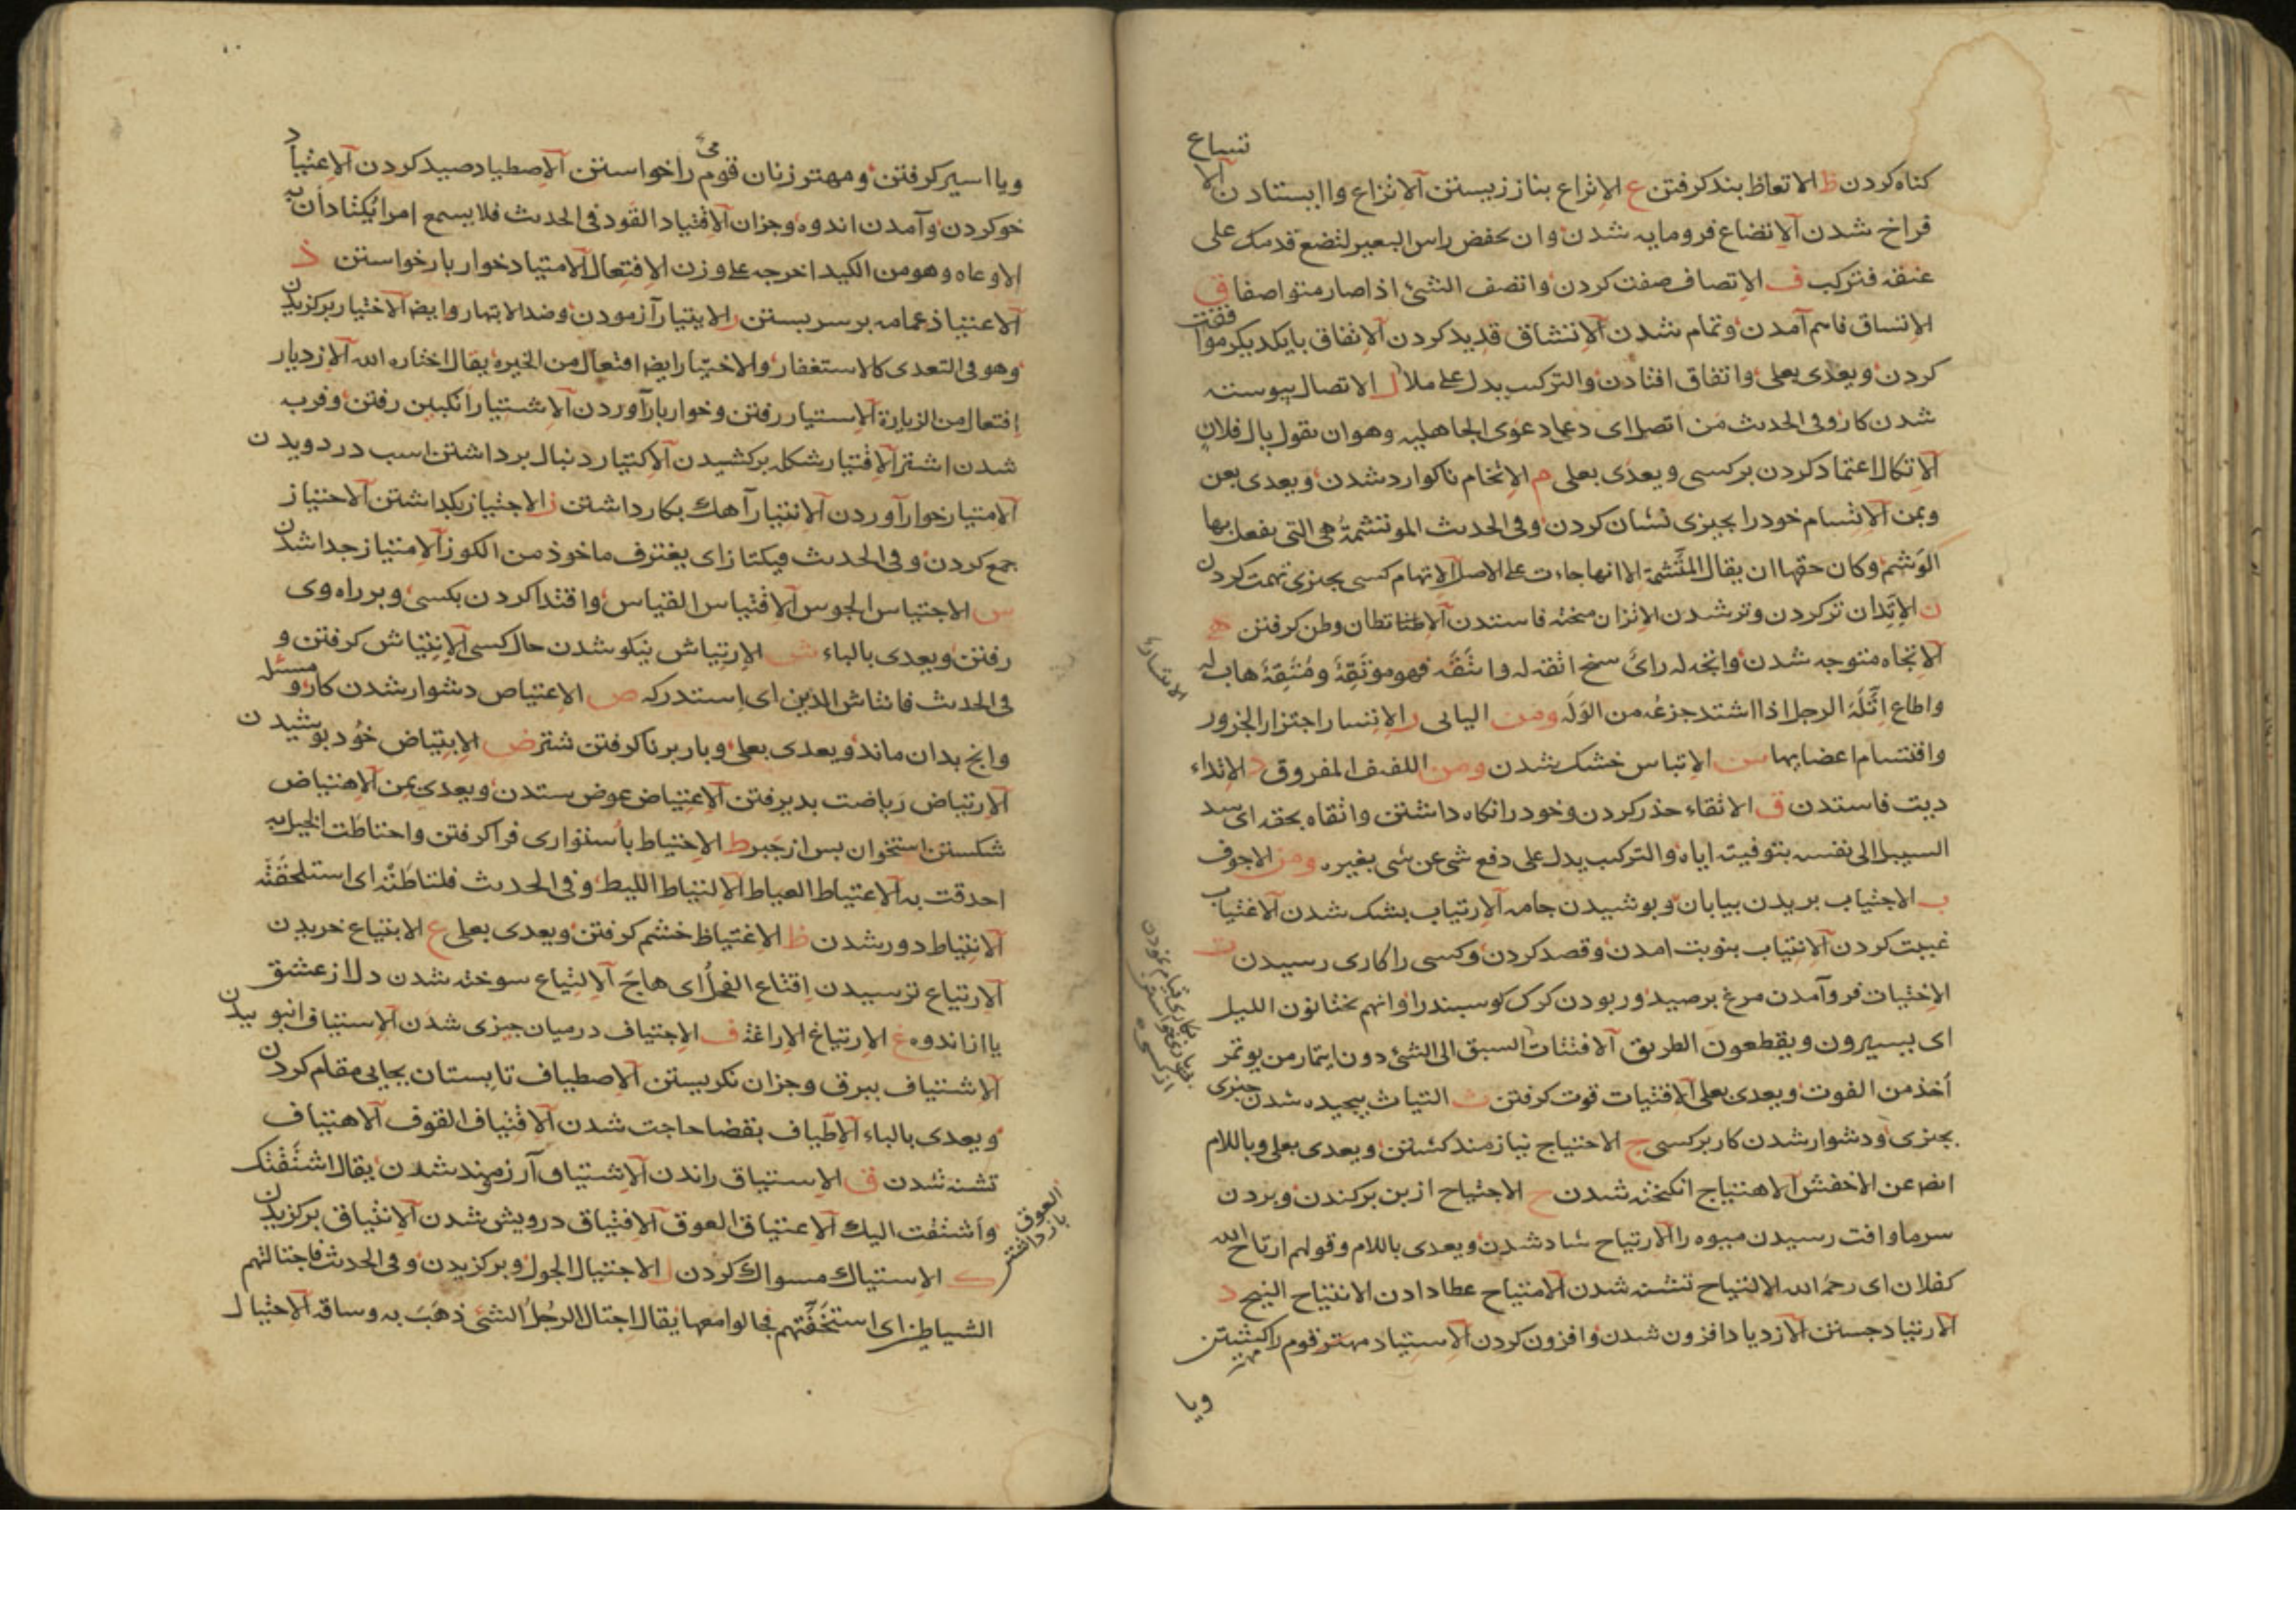 كناه كردن ظ الاتعاظ بند كرفتن ع الاتراع بناز زيستن الاتزاع وا ايستادن الاتساع
فراخ شدن الاتضاع فرومايه شدن وان تخفض راس البعير لتضع قدمك على
عنقه فتركب ف الاتصاف صفت كردن واتصف الشئ اذا صار متواصفا ق
الاتساق فاهم آمدن وتمام شدن الاتشاق قديد كردن الاتفاق بايكديكر موافقت
كردن ويعدى بعلى واتفاق افتادن والتركيب يدل على ملا ل الاتصال پيوسته
شدن كار وفى الحديث من اتصل اى دعا دعوى الجاهلية وهو ان يقول يال فلان
الاتكال اعتماد كردن بر كسى ويعدى بعلى م الاتخام ناكوارد شدن ويعدى بعن
وبمن الاتسام خود را بچيزى نشان كردن وفى الحديث الموتشمة هى التى يفعل بها
الوشم وكان حقها ان يقال المتشمة الا انها جاءت على الاصل الاتهام كسى بچيزى تهمت كردن
ن الاتدان تر كردن وتر شدن الاتزان سخته فاستدن الاتطان وطن كرفتن ه
الاتجاه متوجه شدن واتجه له رأى سنح اتقه له واتقه فهو موتقه ومتقه هاب له
واطاع اتله الرجل اذا اشتد جزعه من الوله ومن اليائى ر الاتسار اجتزار الجزور
واقتسام اعضائها س الاتباس خشك شدن ومن اللفيف المفروق د الاتداء
ديت فاستدن ق الاتقاء حذر كردن وخود را نكاه داشتن واتقاه بحقه اى سد
السبيل الى نفسه بتوفيته اياه والتركيب يدل على دفع شئ عن شئ بغيره ومن الاجوف
ب الاجتياب بريدن بيابان وپوشيدن جامه الارتياب بشك شدن الاغتياب
غيبت كردن الانتياب بنوبت امدن وقصد كردن وكسى را كارى رسيدن ت
الاختيات فرو آمدن مرغ بر صيد وربودن كرك كوسبند را وانهم يختاتون الليل
اى يسيرون ويقطعون الطريق الافتيات السبق الى الشئ دون ايتمار من يوتمر
أخذ من الفوت ويعدى بعلى الاقتيات قوت كرفتن ث التياث پيچيده شدن چيزى
بچيزى ودشوار شدن كار بر كسى ج الاحتياج نيازمند كشتن ويعدى بعلى وباللام
ايضا عن الاخفش الاهتياج انكيخته شدن ح الاجتياح از بن بركندن وبردن
سرما وافت رسيدن ميوه را الارتياح شاد شدن ويعدى باللام وقولهم ارتاح الله
كفلان اى رحمه الله الالتياح تشنه شدن الامتياح عطا دادن الانتياح النيح د
الارتياد جستن الازدياد افزون شدن وافزون كردن الاستياد مهتر قوم را كشتن
ويا
ويا اسير كرفتن ومهتر زنان قومى را خواستن الاصطياد صيد كردن الاعتياد
خو كردن وآمدن اندوه وجز ان الاقتياد القود فى الحديث فلا يسمع امرا يكتاد ان به
الاوعاه وهو من الكيد اخرجه على وزن الافتعال الامتياد خوار بار خواستن ذ
الاعتياذ عمامه بر سر بستن ر الابتيار آزمودن وضد الابتهار وايضا الاختيار بركزيدن
وهو فى التعدى كالاستغفار والاختيار ايضا افتعال من الخيرة يقال اختاره الله الازديار
إفتعال من الزيارة الاستيار رفتن وخوار بار آوردن الاشتيار انكبين رفتن وفربه
شدن اشتر الاقتيار شكله بركشيدن الاكتيار دنبال برداشتن اسب در دويدن
الامتيار خوار آوردن الانتيار آهك بكار داشتن ز الاجتياز بكذاشتن الاحتياز
جمع كردن وفى الحديث فيكتاز اى يغترف ماخوذ من الكوز الامتياز جدا شدن
س الاجتياس الجوس الاقتياس القياس واقتدا كردن بكسى وبر راه وى
رفتن ويعدى بالباء ش الارتياش نيكو شدن حال كسى الانتياش كرفتن و
فى الحديث فانتاش الدين اى استدركه ص الاعتياص دشوار شدن كار ومسئله
وانچ بدان ماند ويعدى بعلى وبار برنا كرفتن شتر ض الابتياض خود پوشيدن
الارتياض رياضت پذيرفتن الاعتياض عوض ستدن ويعدى بمن الاهتياض
شكستن استخوان پس از جبر ط الاحتياط باستوارى فرا كرفتن واحتاطت الخيل به
احدقت به الاعتياط العياط الالتياط الليط وفى الحديث فلتاطته اى استلحقته
الانتياط دور شدن ظ الاغتياظ خشم كرفتن ويعدى بعلى ع الابتياع خريدن
الارتياع ترسيدن اقتاع الفحل اى هاج الالتياع سوخته شدن دل از عشق
يا از اندوه غ الارتياغ الاراغة ف الاجتياف در ميان چيزى شدن الاستياف انبوييدن
الاشتياف ببرق وجز ان نكريستن الاصطياف تابستان بجايى مقام كردن
ويعدى بالباء الاطياف بقضا حاجت شدن الاقتياف القوف الاهتياف
تشنه شدن ق الاستياق راندن الاشتياق آرزومند شدن يقال اشتقتك
واشتقت اليك الاعتياق العوق الافتياق درويش شدن الانتياق بركزيدن
ك الاستياك مسواك كردن ل الاجتيال الجول وبركزيدن وفى الحديث فاجتالتهم
الشياطين اى استخفتهم فجالوا معها يقال اجتال الرجل الشئ ذهب به وساقه الاحتيال
العوق
باز داشتن